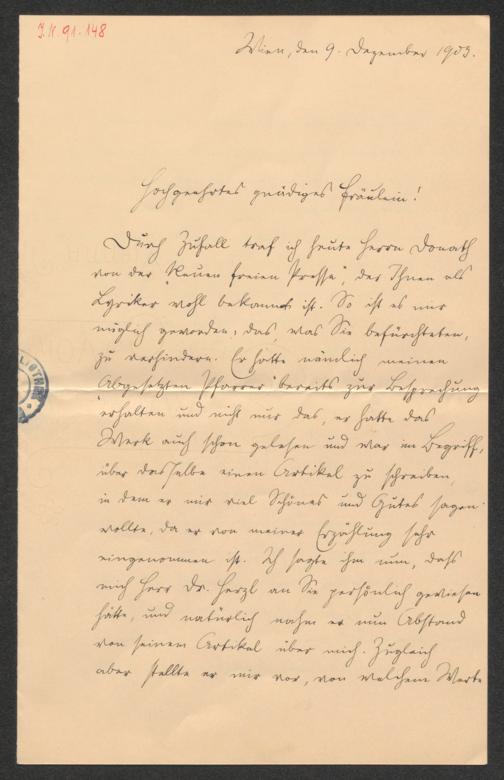 J.N. 91.148
Wien, den 9. Dezember 1903.
Hochgeehrtes gnädiges Fräulein!
Durch Zufall traf ich heute Herrn Donath
von der "Neuen freien Presse", der Ihnen als
Lyriker wohl bekannt ist. So ist es mir
möglich geworden, das, was Sie befürchteten,
zu verhindern. Er hatte nämlich meinen
"Abgesetzten Pfarrer" bereits zur Besprechung
erhalten und nicht nur das, er hatte das
Werk auch schon gelesen und war im Begriff,
über dasselbe einen Artikel zu schreiben,
in dem er mir viel Schönes und Gutes sagen
wollte, da er von meiner Erzählung sehr
eingenommen ist. Ich sagte ihm nun, daß
mich Herr Dr. Herzl an Sie persönlich gewiesen
hätte, und natürlich nahm er nun Abstand
von seinem Artikel über mich. Zugleich
aber stellte er mir vor, von welchem Werte